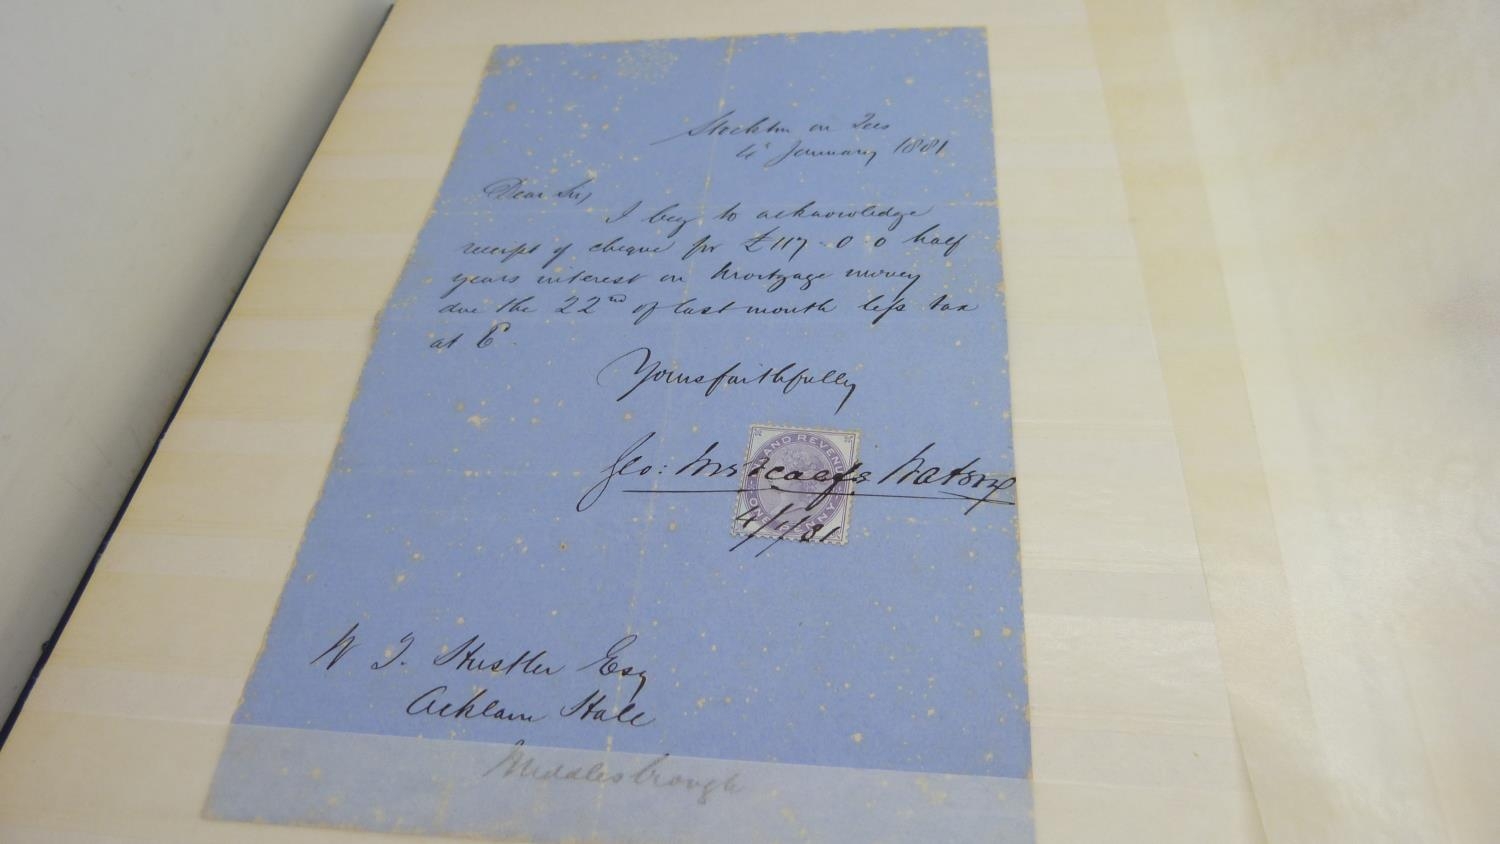 Stockton on Tees
4th January 1881
Dear Sir,
I beg to acknowledge
receipt of cheque for £117-0 0 half
years interest on Mortgage money
due the 22nd of last month less tax
at
Yours faithfully
INLAND REVENUE
Geo: Metcalfe Watson
ONE PENNY
4/1/81
W T. Hustler Esq
Acklam Hall
Middlesbrough